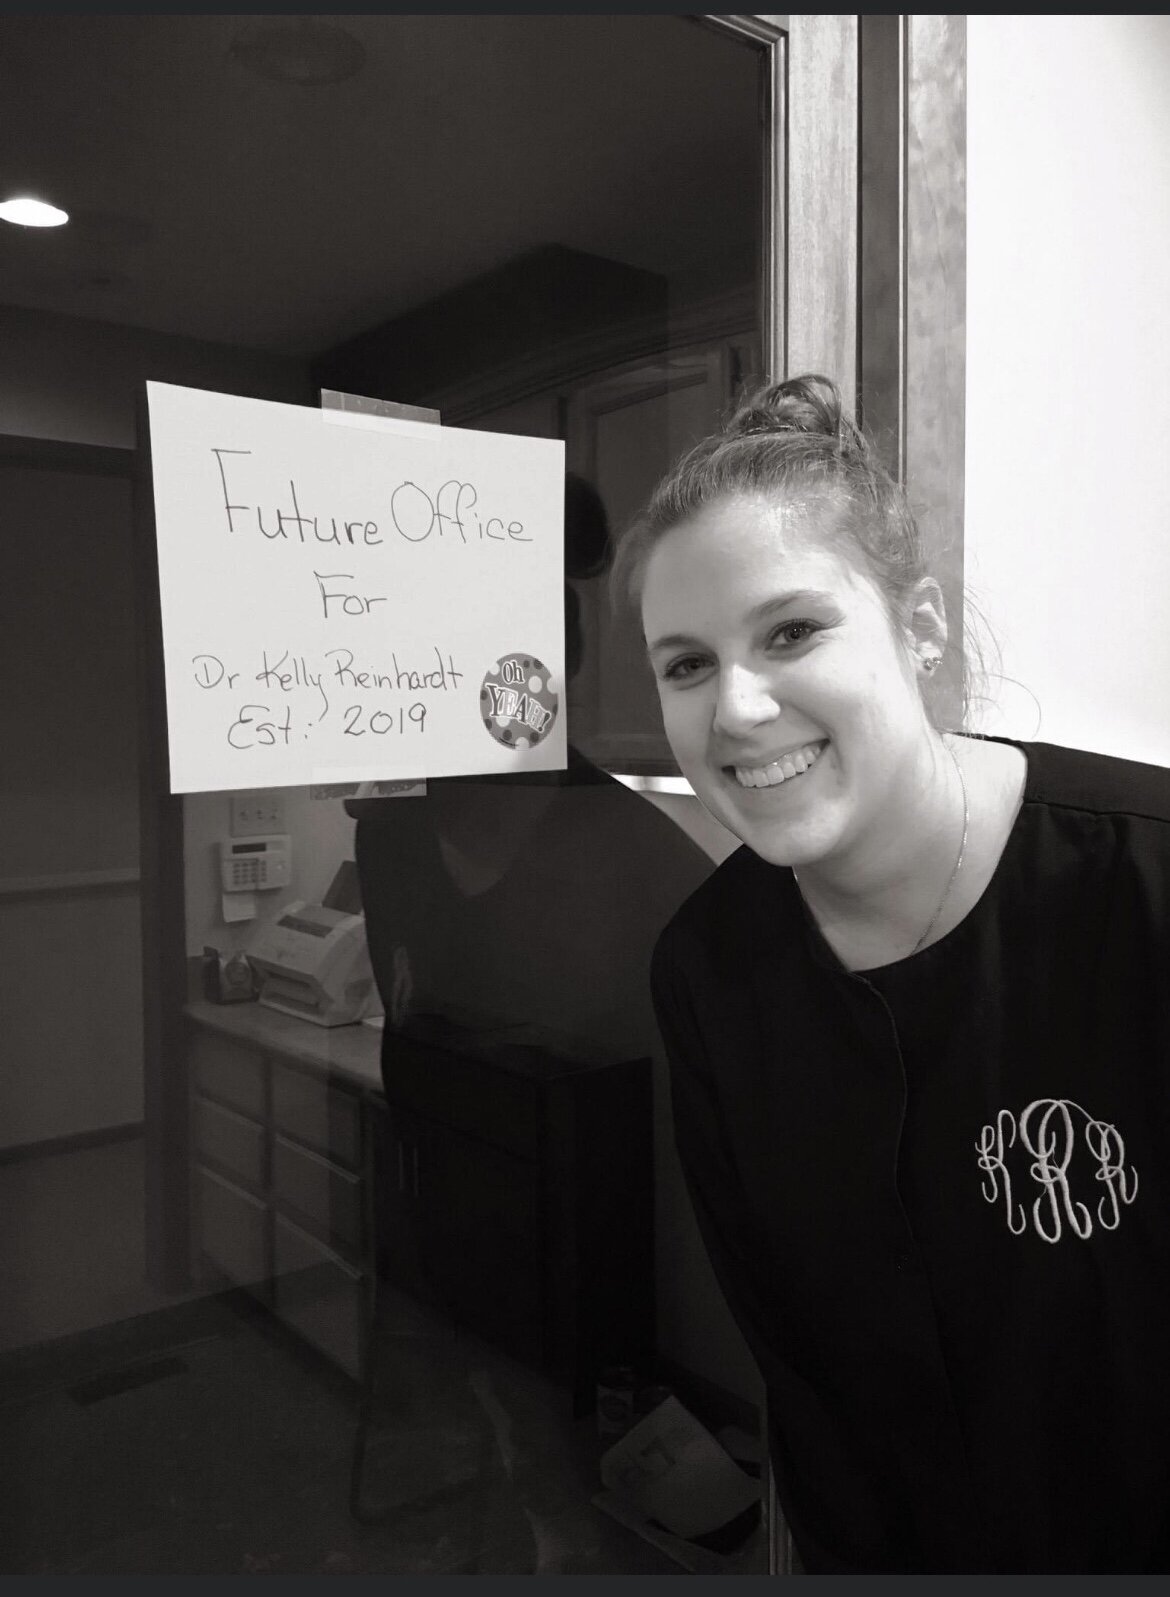 Future Office
For
Dr Kelly Reinhardt
Est: 2019
Oh
YEAH!
KRR